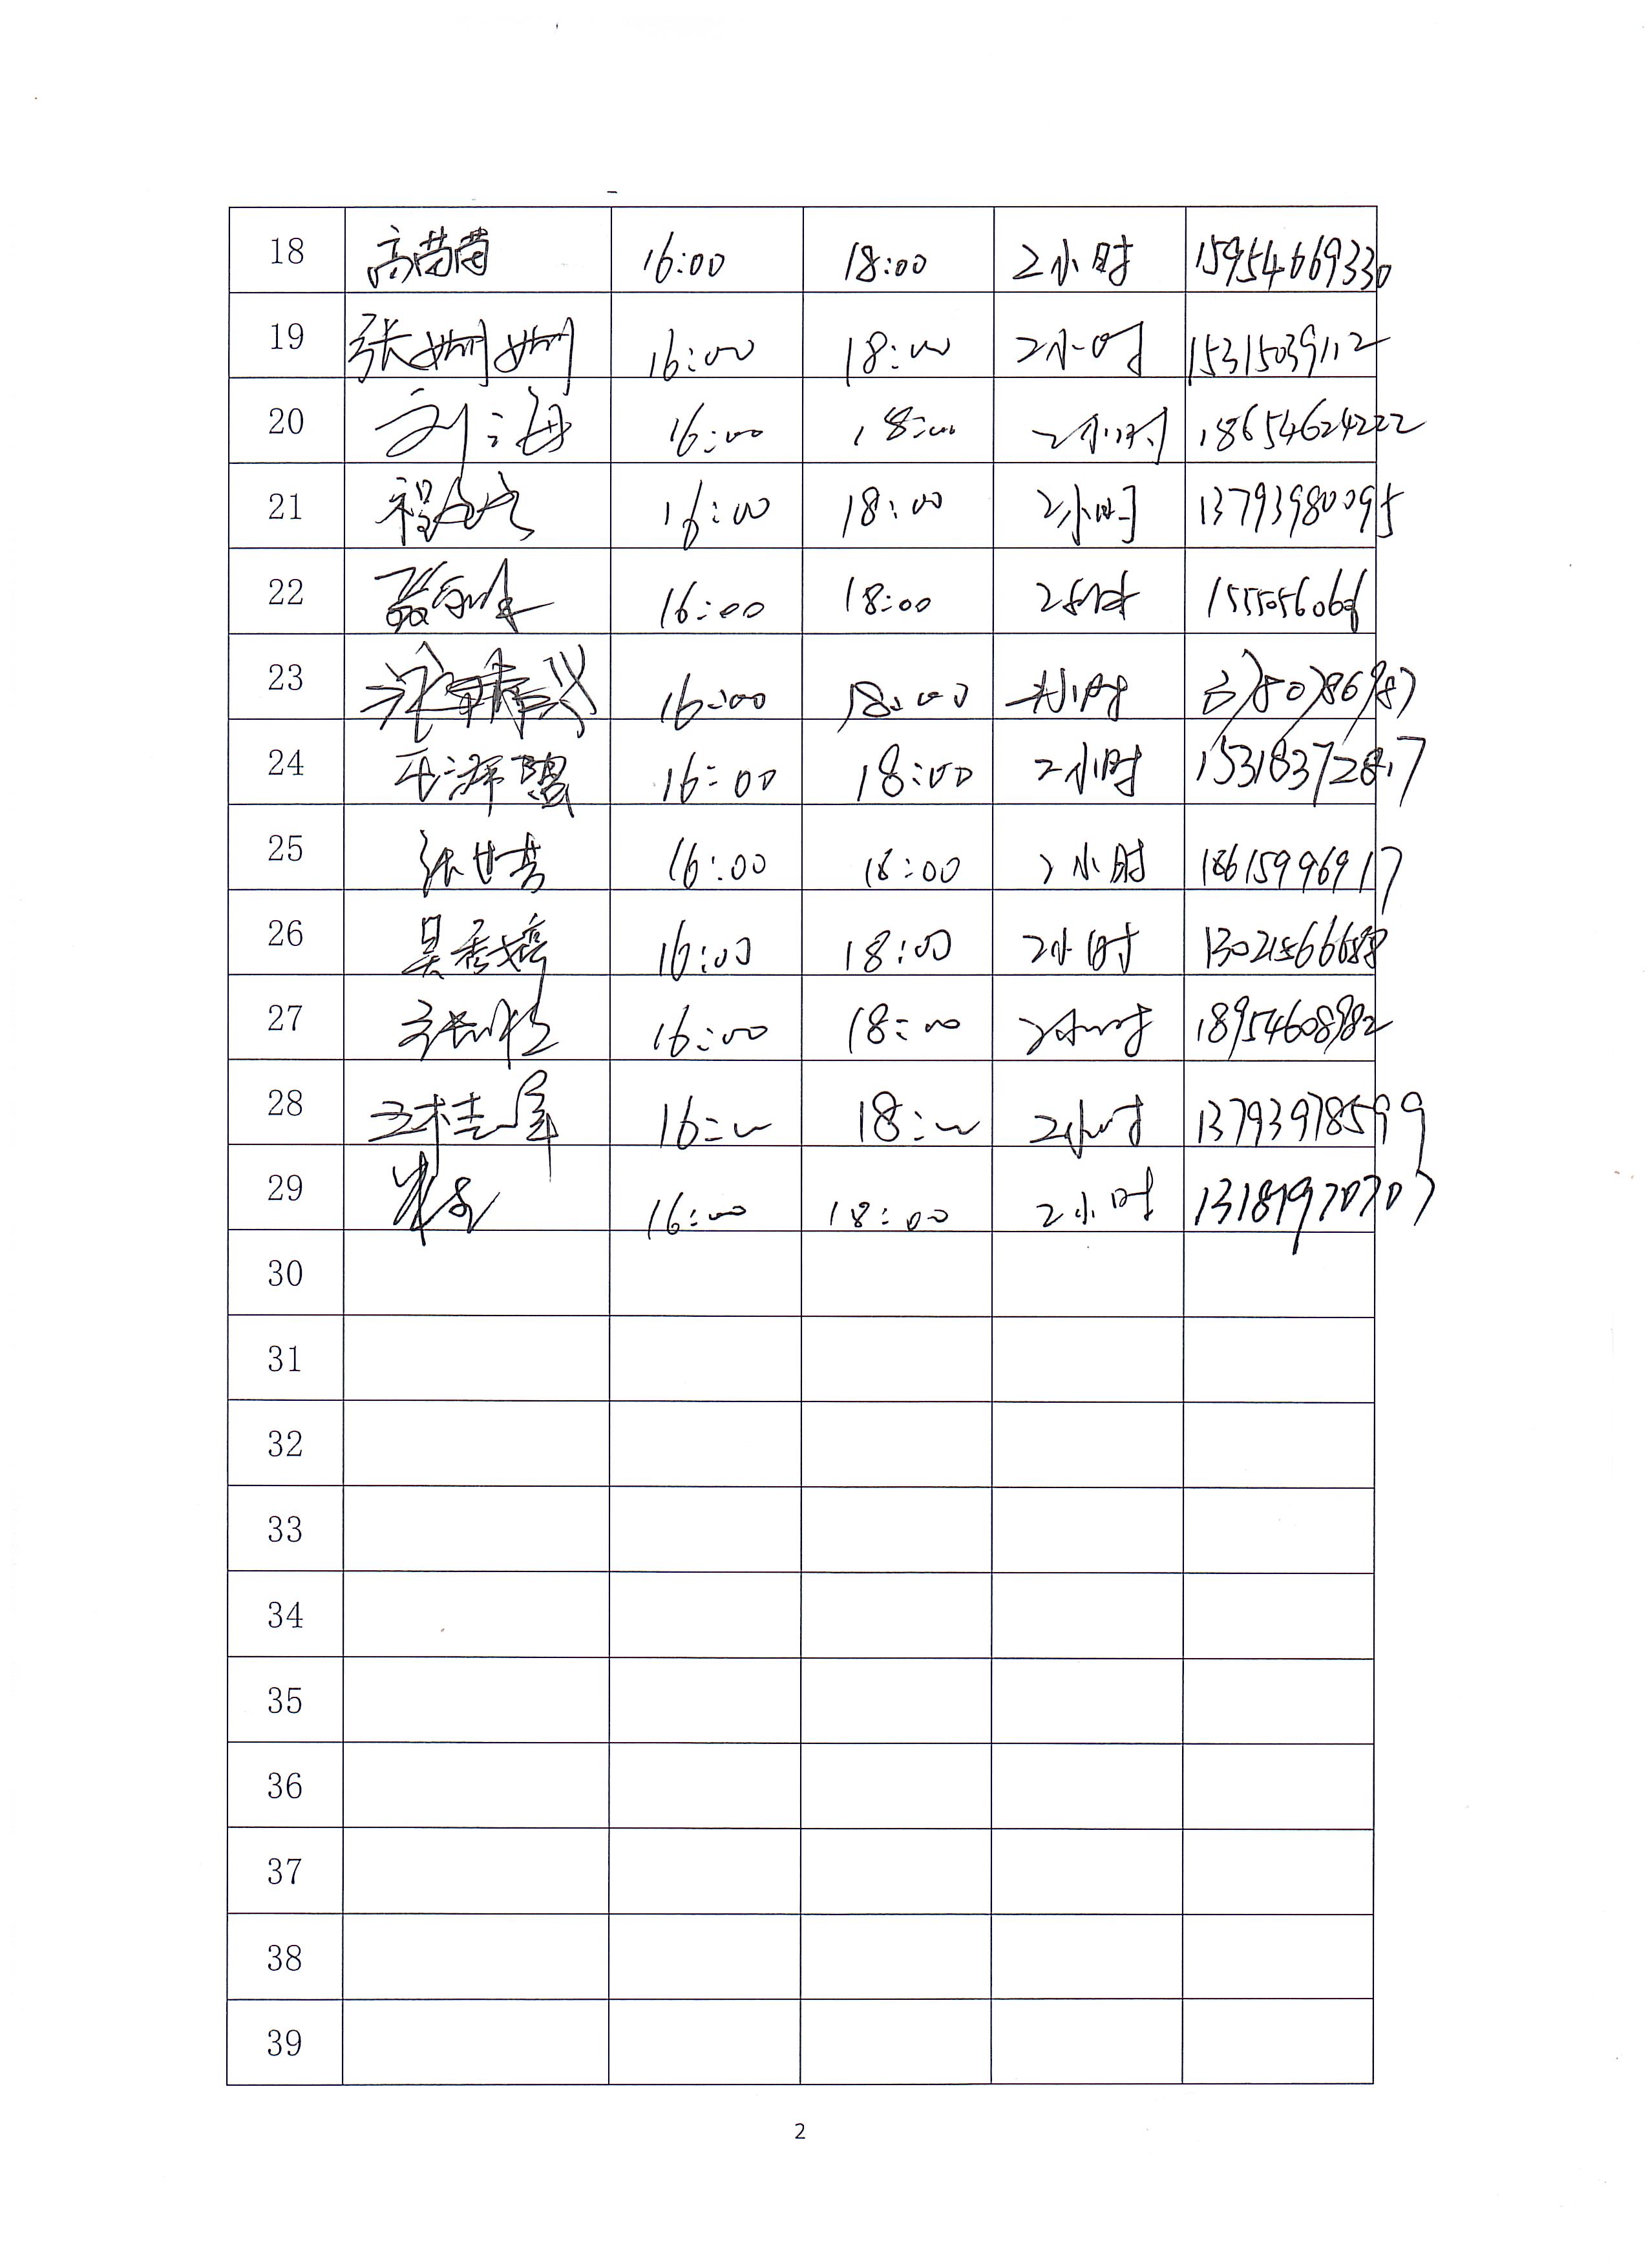 18 高苗苗 16:00 18:00 2小时 15954669330
19 张姗姗 16:00 18:00 2小时 15315039112
20 刘海 16:00 18:00 2小时 18654624222
21 16:00 18:00 2小时 13793980095
22 16:00 18:00 2小时
23 16:00 18:00 小时
24 16:00 18:00 2小时 15318372817
25 张世芳 16:00 18:00 2小时 18615996917
26 吴秀婷 16:00 18:00 2小时
27 16:00 18:00 2小时 18954608982
28 王桂军 16:00 18:00 2小时 13793978599
29 16:00 18:00 2小时 13181970707
30
31
32
33
34
35
36
37
38
39
2